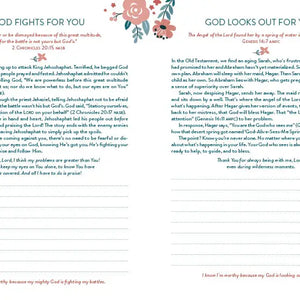 OD FIGHTS FOR YOU
or be dismayed because of this great multitude,
for the battle is not yours but God's."
2 CHRONICLES 20:15 NKJV
up to attack King Jehoshaphat. Terrified, he begged God
people prayed and fasted. Jehoshaphat admitted he couldn't
dling God, "We are powerless before this great multitude
us; nor do we know what to do, but our eyes are on You"
ough the great Jahaziel, telling Jehoshaphat not to be afraid
the battle wasn't his but God's. God said, "Station yourselves,
tion of the LORD on your behalf" (2 Chronicles 20:17 NASB).
nd in hand and heart, Jehoshaphat led his people out before
nd praising the Lord! The story ends with the enemy armies
acing Jehoshaphat to simply pick up the spoils.
e coming against you, there's no need to be fearful or dis-
p your eyes on God, knowing He's got you. He's fighting your
aise and follow Him.
Lord, I think my problems are greater than You!
keeping my eyes on You, alone, to know You have
e covered. And all I have to do is praise!
rthy because my mighty God is fighting my battles.
GOD LOOKS OUT FOR Y
The Angel of the Lord found her by a spring of water i
GENESIS 16:7 AMPC
In the Old Testament, we find an aging Sarai, who's frustrat
had promised to her and Abraham hasn't yet materialized. S
own plan. Abraham will sleep with her maid, Hagar. Then Sa
as her own. Abraham agrees, as does Hagar, who gets preg
a sense of superiority over Sarai.
Sarai, now despising Hagar, sends her away. The maid
and sits down by a well. That's where the angel of the Lord
what's happening. After Hagar gives her version of events, t
back to her mistress, that God has heard Hagar. That "the L
attention" (Genesis 16:11 AMPC) to her problem.
In response, Hagar says, "You are the God who sees me" (
how that desert spring got named 'God-Alive-Sees-Me Sprin
The point? You're never alone. No matter where you
about what's happening in your life. Your God who sees is alwa
ready to help, to guide, and to bless.
Thank You for always being with me, Lor
even during wilderness moments.
I know I'm worthy because my God is looking o